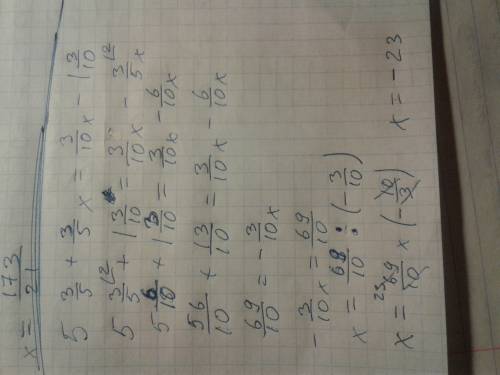 x = 173/21
5 3/5 + 3/5 x = 3/10 x - 1 3/10
5 3/5 + 1 3/10 = 3/10 x - 3/5 x
5 6/10 + 1 3/10 = 3/10 x - 6/10 x
56/10 + 13/10 = 3/10 x - 6/10 x
69/10 = - 3/10 x
- 3/10 x = 69/10
x = 69/10 : (- 3/10)
x = 69/10 × (- 10/3) x = - 23